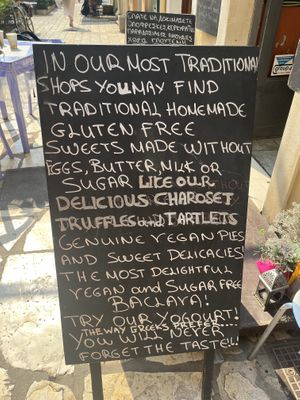 ΕΛΑΤΕ ΝΑ ΔΟΚΙΜΑΣΕΤΕ
IN OUR MOST TRADITIONAL
SHOPS YOU MAY FIND
TRADITIONAL HOMEMADE
GLUTEN FREE
SWEETS MADE WITHOUT
EGGS, BUTTER MILK OR
SUGAR LIKE OUR
DELICIOUS CHAROSET
TRUFFLES and TARTLETS
GENUINE VEGAN PIES
AND SWEET DELICACIES!
THE MOST DELIGHTFUL
VEGAN and SUGAR FREE
BACLAVA!
TRY OUR YOGOURT!
THE WAY GREEKS PREFER...
YOU WILL NEVER
FORGET THE TASTE!..!